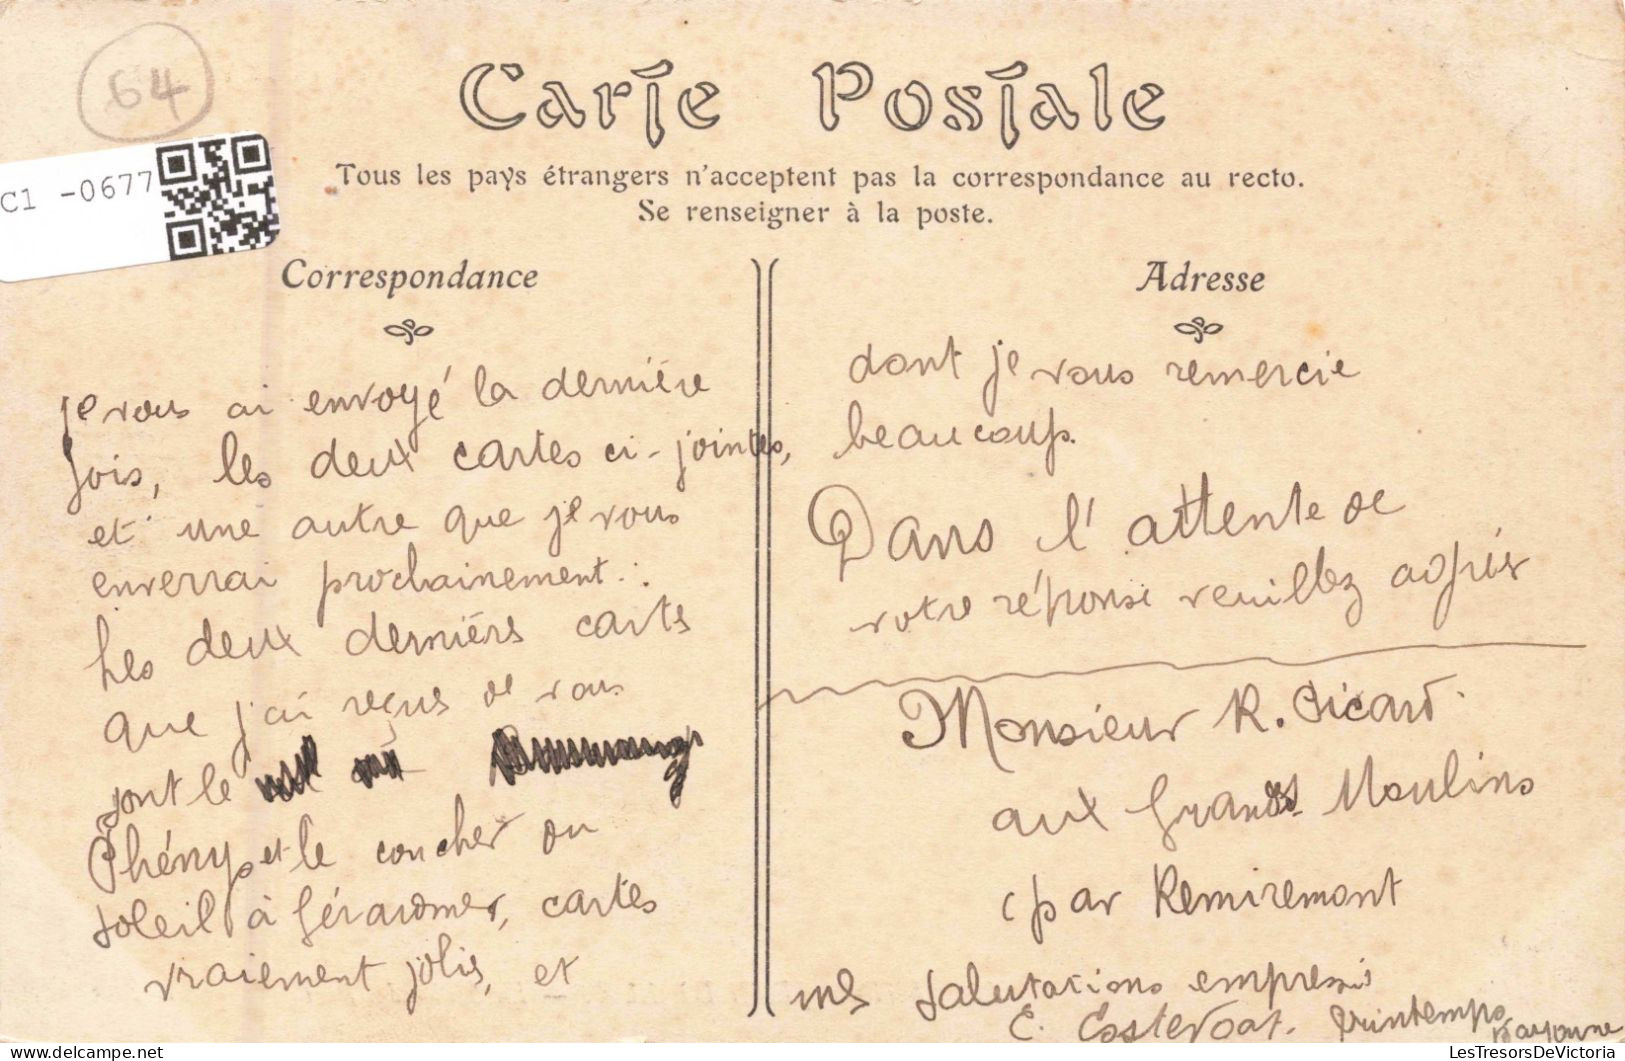 64
C1 -0677
Carte Postale
Tous les pays étrangers n'acceptent pas la correspondance au recto.
Se renseigner à la poste.
Correspondance
je vous ai envoyé la dernière
fois, les deux cartes ci-jointes,
et une autre que je vous
enverrai prochainement.
Les deux dernières cartes
que j'ai reçues de vous
sont le
Phény, et le coucher du
soleil à Gérardmer, cartes
vraiement jolies, et
Adresse
dont je vous remercie
beaucoup.
Dans l'attente de
votre réponse veuillez agréer
Monsieur R. Sicard
aux Grands Moulins
(par Remiremont
mes salutations empressés
E. Printemps
Bayonne
LesTresorsDeVictoria